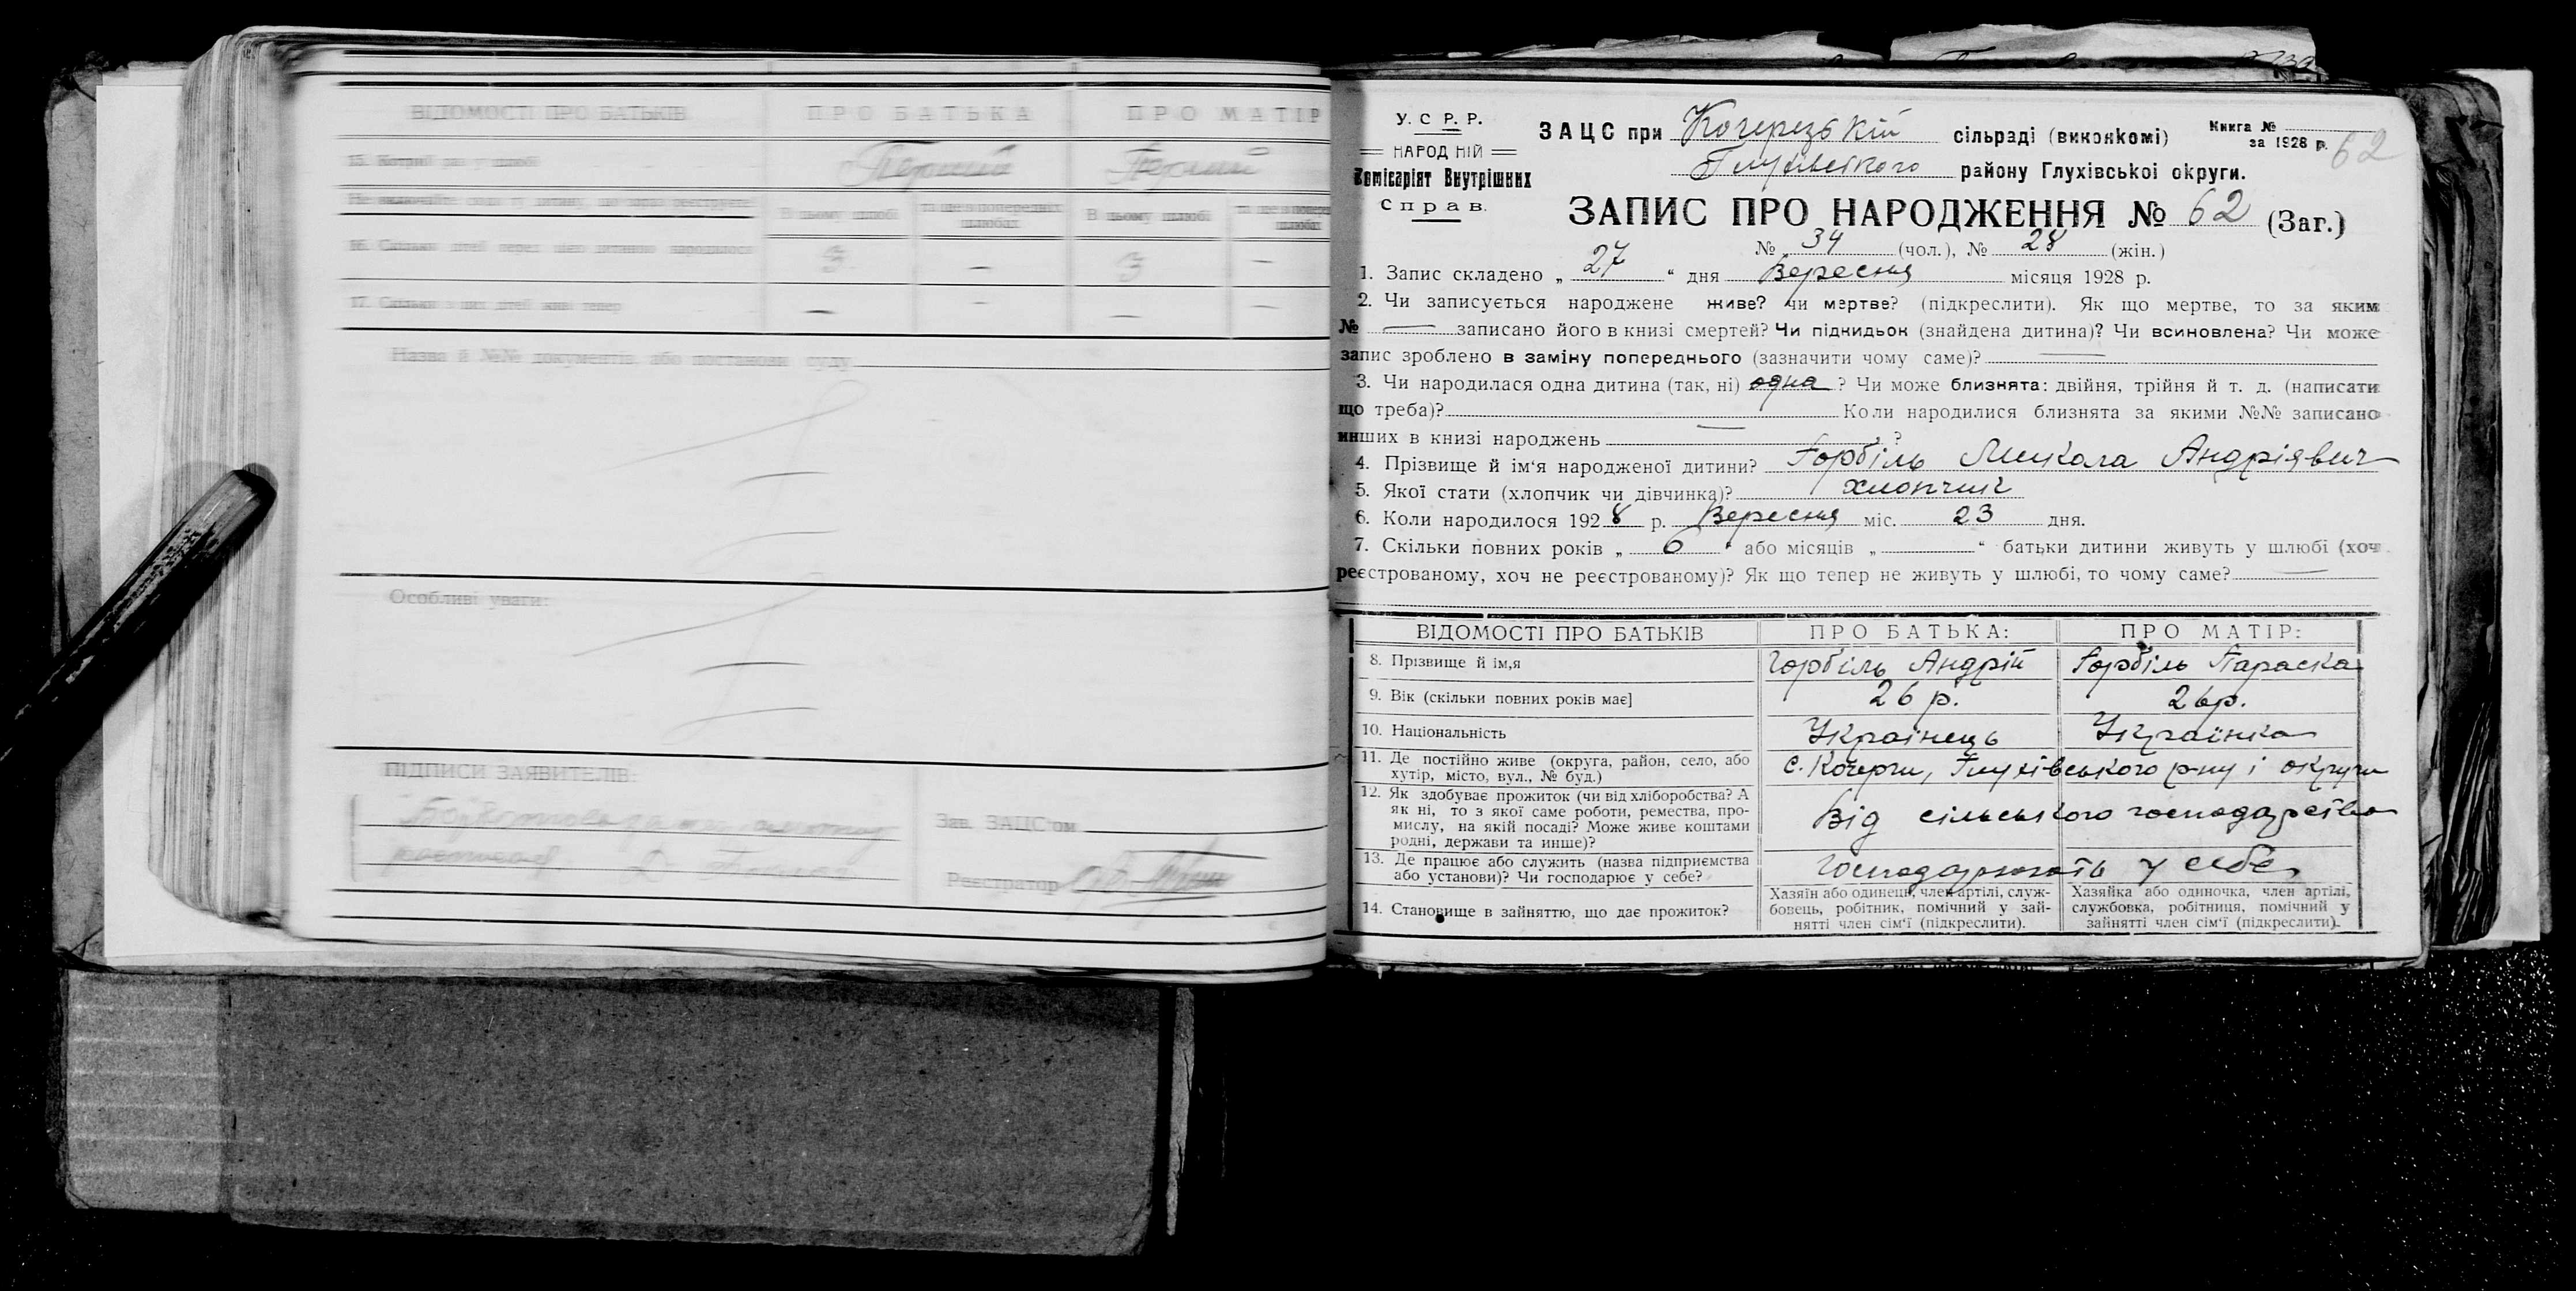 ВІДОМОСТІ ПРО БАТЬКІВ ПРО БАТЬКА ПРО МАТІР
15. Котрий раз у шлюбі Перший Перший
В цьому шлюбі та ще в попередніх шлюбах В цьому шлюбі
16. Скільки дітей перед цією дитиною народилося 3 — 3 —
17. Скільки з цих дітей живі тепер — — — —
Назва й №№ документів або постанови суду
Особливі уваги:
ПІДПИСИ ЗАЯВИТЕЛІВ:
Зав. ЗАЦС'ом
Реєстратор
У. С Р. Р.
НАРОДНІЙ
Комісаріят Внутрішних
Справ.
ЗАЦС при Кочерзькій сільраді (виконкомі)
Глухівського району Глухівської округи.
Книга №
за 1928 р.
62
ЗАПИС ПРО НАРОДЖЕННЯ № 62 (Заг.)
№ 34 (чол.), № 28 (жін.)
1. Запис складено „ 27 “ дня Вересня місяця 1928 р.
2. Чи записується народжене живе? чи мертве? (підкреслити). Як що мертве, то за яким
№ — записано його в книзі смертей? Чи підкидьок (знайдена дитина)? Чи всиновлена? Чи може
запис зроблено в заміну попереднього (зазначити чому саме)? —
3. Чи народилася одна дитина (так, ні) одна ? Чи може близнята: двійня, трійня й т. д. (написати
що треба)? Коли народилися близнята за якими №№ записано
инших в книзі народжень — ?
4. Прізвище й ім‘я народженої дитини? Горбіль Микола Андріявич
5. Якої стати (хлопчик чи дівчинка)? хлопчик
6. Коли народилося 1928 р. Вересня міс. 23 дня.
7. Скільки повних років „ 6 “ або місяців „ “ батьки дитини живуть у шлюбі (хоч
реєстрованому, хоч не реєстрованому)? Як що тепер не живуть у шлюбі, то чому саме? —
ВІДОМОСТІ ПРО БАТЬКІВ ПРО БАТЬКА: ПРО МАТІР:
8. Прізвище й ім,я Горбіль Андрій Горбіль Параска
9. Вік (скільки повних років має] 26 р. 26 р.
10. Національність Українець Українка
11. Де постійно живе (округа, район, село, або
хутір, місто, вул., № буд.) с. Кочерги, Глухівського р-ну і округи
12. Як здобуває прожиток (чи від хліборобства? А
як ні, то з якої саме роботи, ремества, про-
мислу, на якій посаді? Може живе коштами
родні, держави та инше)? Від сільського господарства
13. Де працює або служить (назва підприємства
або установи)? Чи господарює у себе? Господарюють у себе
14. Становище в зайняттю, що дає прожиток?
Хазяїн або одинець, член артілі, служ-
бовець, робітник, помічний у зай-
нятті член сім‘ї (підкреслити).
Хазяйка або одиночка, член артілі,
службовка, робітниця, помічний у
зайнятті член сім‘ї (підкреслити).